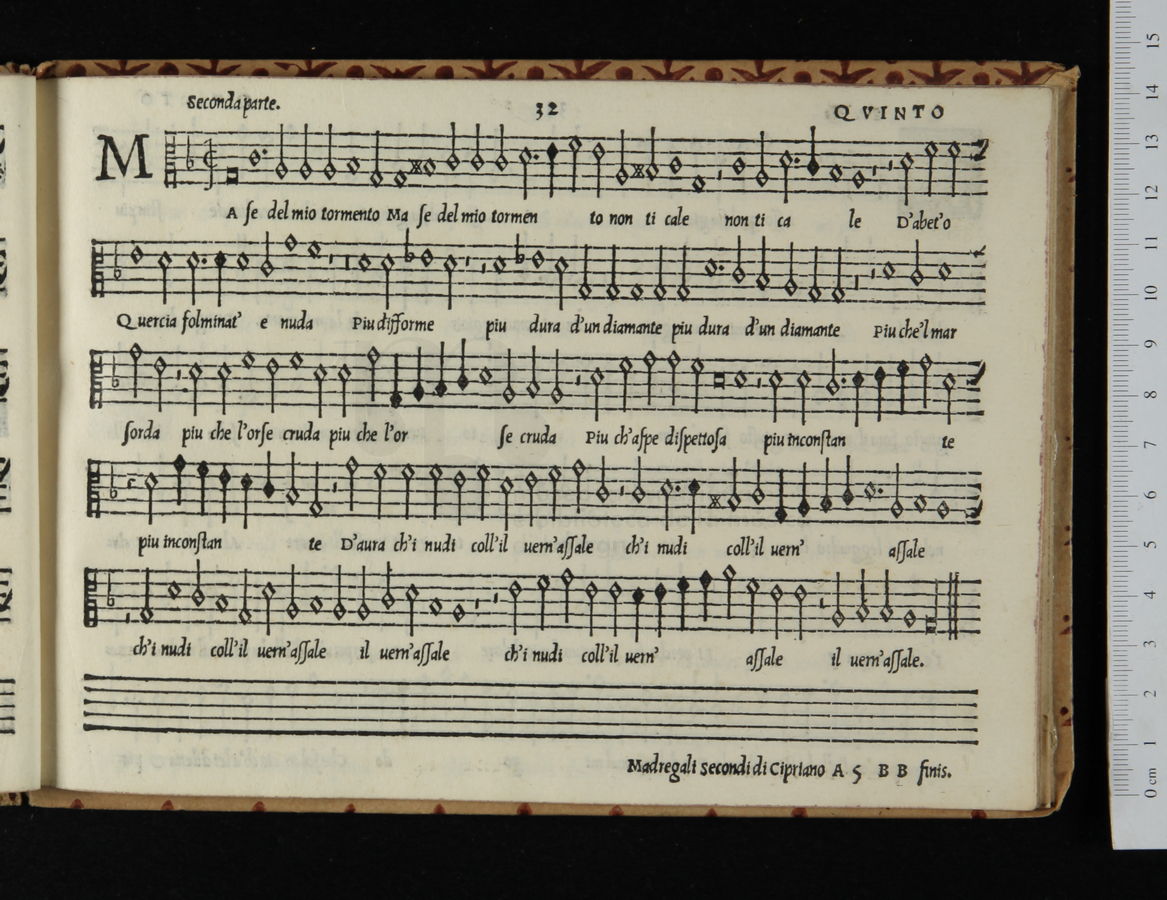 Seconda parte. 32 QVINTO
M
A se del mio tormento Ma se del mio tormen to non ti cale non ti ca le D'abet'o
Quercia folminat' e nuda Piu difforme piu dura d'un diamante piu dura d'un diamante Piu che'l mar
sorda piu che l'orse cruda piu che l'or se cruda Piu ch'aspe dispettosa piu inconstan te
piu inconstan te D'aura ch'i nudi coll'il uern'assale ch'i nudi coll'il uern' assale
ch'i nudi coll'il uern'assale il uern'assale ch'i nudi coll'il uern' assale il uern'assale.
Madregali secondi di Cipriano A 5 B B finis.
0 cm 1 2 3 4 5 6 7 8 9 10 11 12 13 14 15